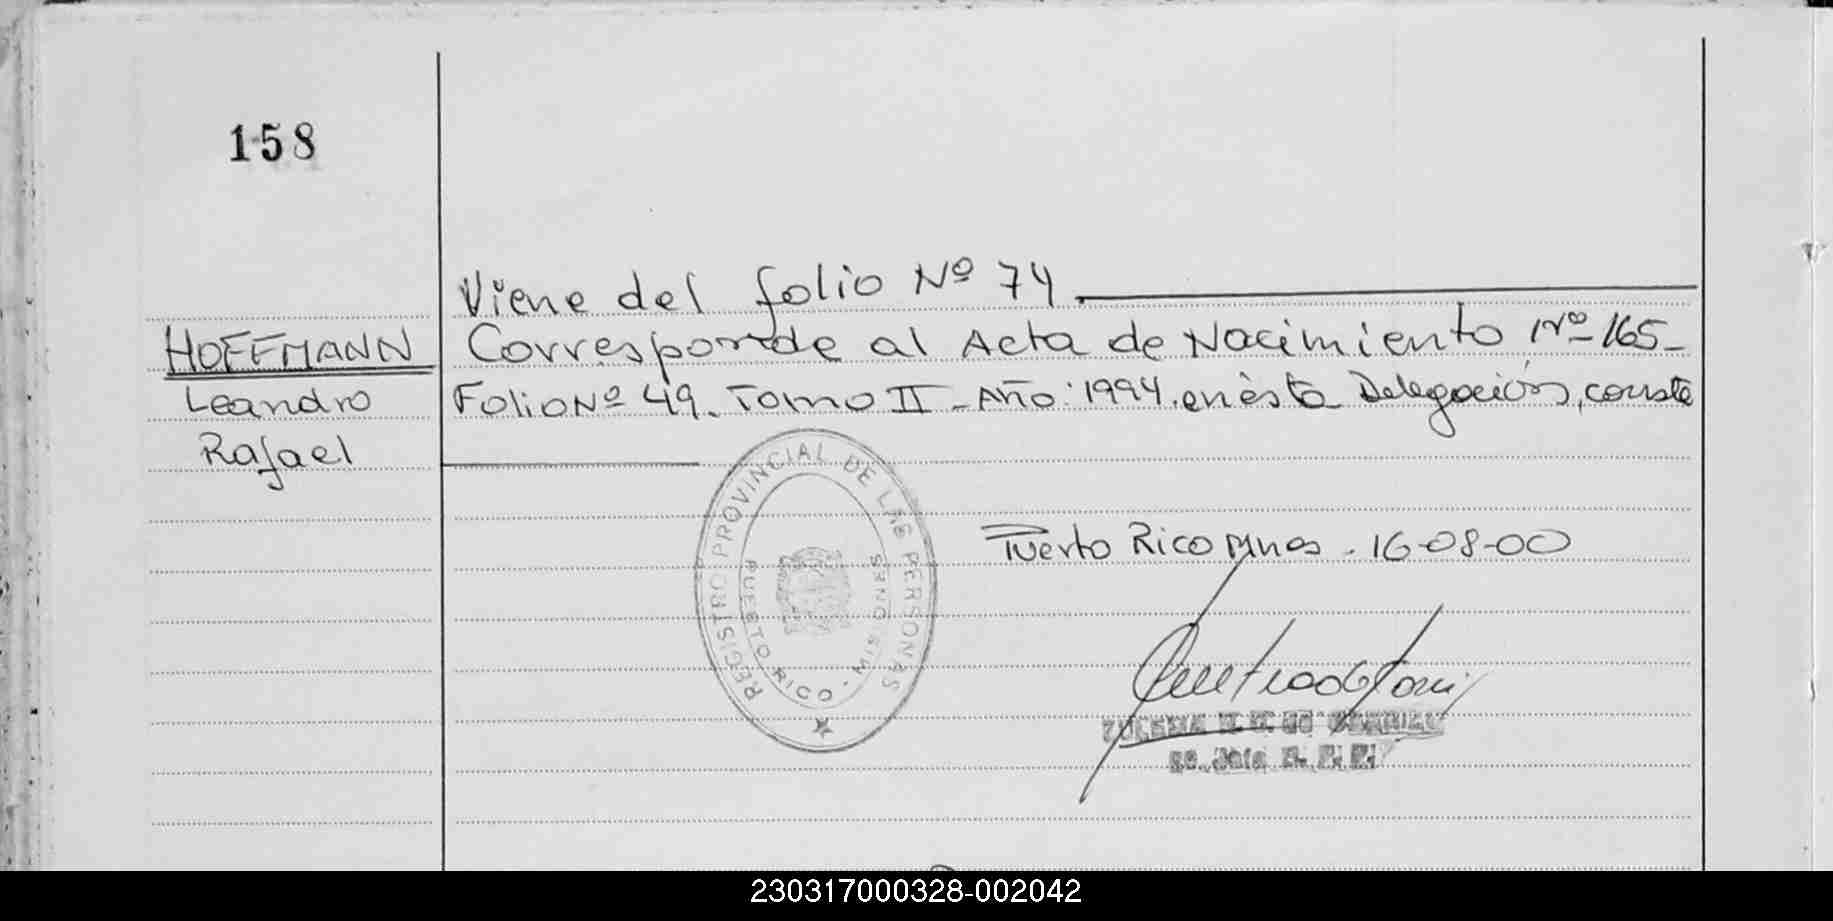 158
Viene del folio Nº 74
HOFFMANN
Corresponde al Acta de Nacimiento Nº 165-
Leandro
Folio Nº 49. Tomo II - Año: 1994. en ésta Delegación, conste
Rafael
REGISTRO PROVINCIAL DE LAS PERSONAS
PUERTO RICO - MISIONES
Puerto Rico Mnes. 16-08-00
230317000328-002042